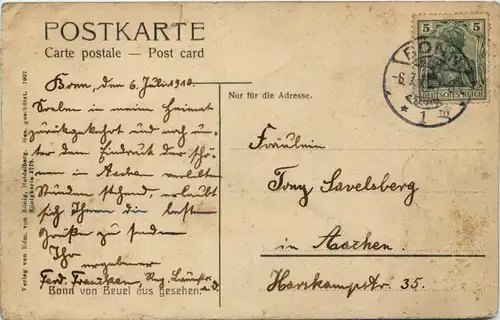 POSTKARTE
Carte postale — Post card
Bonn, den 6. Juli 1910.
Soeben in meine Heimat
zurückgekehrt und noch un-
ter dem Eindruck der schö-
nen in Aachen verlebten
Stunden stehend, erlaubt
sich Ihnen die besten
Grüße zu senden
Ihr
ergebener
Ferd. Francken,
Bonn von Beuel aus gesehen.
Verlag von Edm. von König, Heidelberg. Ges. geschützt. 1907
Nur für die Adresse.
Fräulein
Tony Savelsberg
in Aachen.
Harskampstr. 35.
5 5
DEUTSCHES REICH
BONN
1